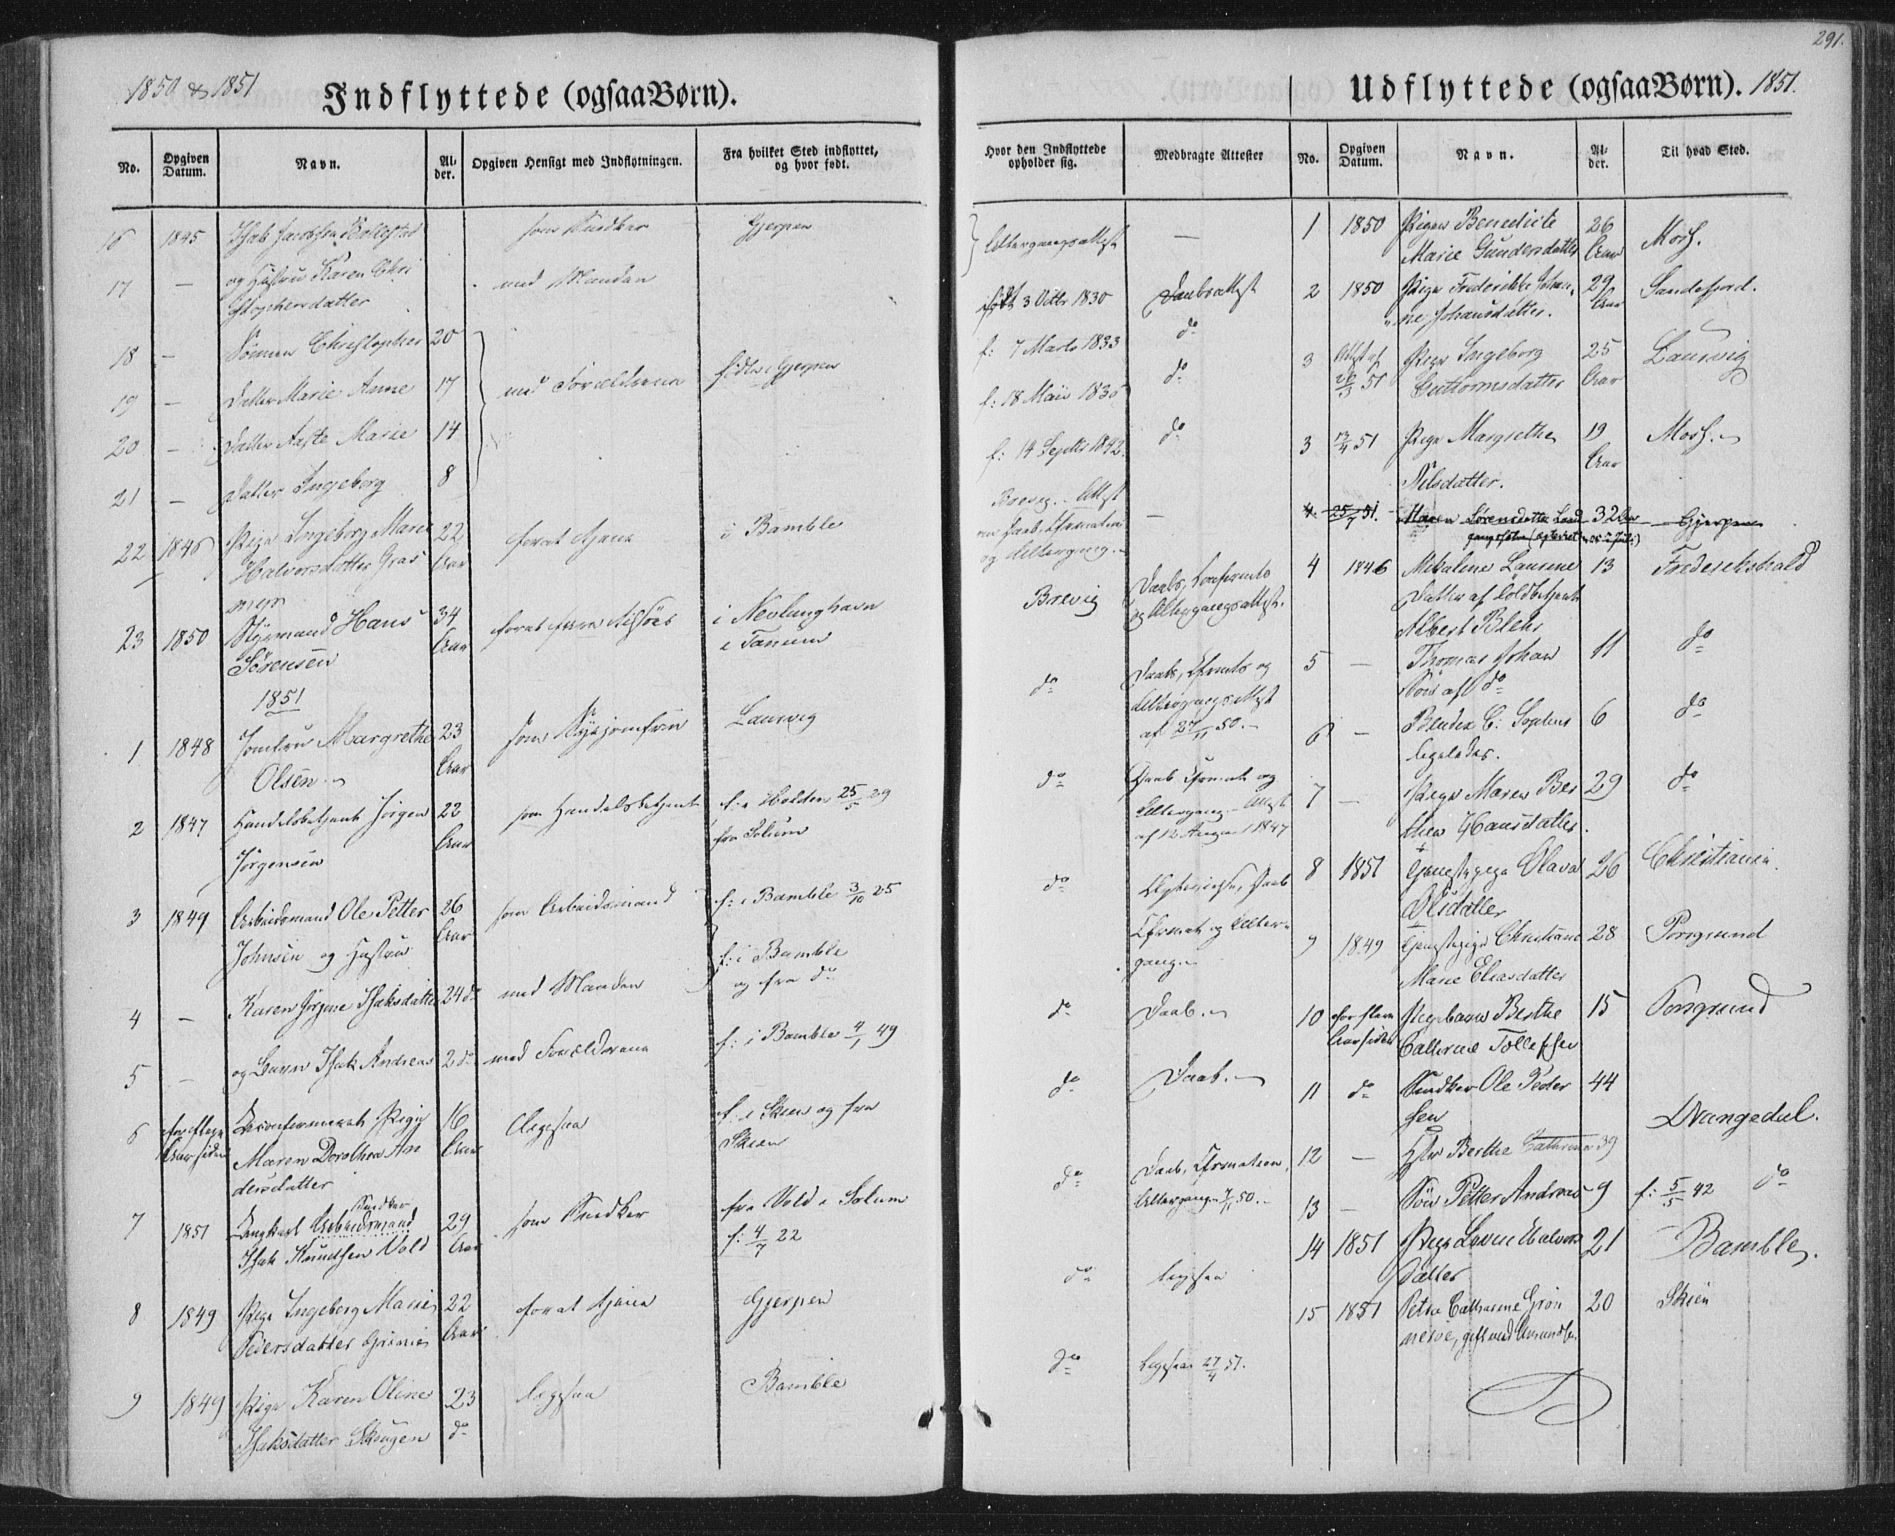 1850 & 1851
Indflyttede (ogsaa Børn).
No.
Opgiven Datum.
Navn.
Al-der.
Opgiven Hensigt med Indflytningen.
Fra hvilket Sted indflyttet, og hvor født.
16 1845 Isak Jacobsen som Snedker Gjerpen
17 — og Hustru Karen Chri med Manden
stophersdatter
18 — Sönnen Christopher 20
19 — Datter Marie Anne 17 med Forældrene født i Gjerpen
20 — Datter Aaste Marie 14
21 — Datter Ingeborg 8
22 1846 Pige Ingeborg Marie 22 for at tjene i Bamble
Halvorsdatter Gras Aar
myr
23 1850 Styrmand Hans 34 for at fare tilsöes i Nevlunghavn
Sörensen Aar i Tanum
1851
1 1848 Jomfru Margrethe 23 som Syejomfru Laurvig
Olsen Aar
2 1847 Handelsbetjent Jörgen 22 som Handelsbetjent f: i Holden 25/5 29
Jörgensen Aar fra Solum
3 1849 Arbeidsmand Ole Petter 26 som Arbeidsmand f: i Bamble 3/10 25
Johnsen og Hustru Aar f: i Bamble
4 — Karen Isaksdatter 24 do med Manden og fra do
5 — og Barn Isak Andreas 2 do med Forældrene f: i Bamble 4/1 49
6 for flere Aar siden Ukonfirmeret Pige 16 ligesaa f. i Skien og fra
Maren Dorothea An Aar Skien
dersdatter
Snedker
7 1851 Ungkarl Arbeidsmand 29 som Snedker fra Vold i Solum
Isak Knudsen Vold Aar f: 4/7 22
8 1849 Pige Ingeborg Marie 22 for at tjene Gjerpen
Pedersdatter Aar
9 1849 Pige Karen Oline 23 ligesaa Bamble
Isaksdatter Skougen do
291.
Udflyttede (ogsaa Børn). 1851.
Hvor den Indflyttede opholder sig.
Medbragte Attester
No.
Opgiven Datum.
Navn.
Al-der.
Til hvad Sted.
Altergangsattest —
født 3 Octbr 1830 Daabsattest
f: 7 Marts 1833 do
f: 18 Maii 1835 do
f: 14 Septbr 1842. do
Brevig. Attest —
om Daab, Cfirmation
og Altergang.
Brevig Daabs, Confirmats
og Altergangsattest.
do Daabs, Cfirmats og
Altergangsattest
af 27/11 50.
do Daab Cfirmats og
Altergang Attest
af 12 August 1847
do Daab
Cfirmats og Alter-
gang.
do Daab.
do Daab.
do Daab, Cfirmation,
Altergang 7/11 50.
do ligesaa
do ligesaa 27/4 51.
1 1850 Pigen Benedicte 26 Moss.
Marie Gundersdatter Aar
2 1850 Pige Frederikke Johan- 29 Sandefjord.
ne Johansdatter. Aar
3 Attest af Pige Ingeborg 25 Laurvig
26/3 51 Guttormsdatter Aar
3 12/4 51 Pige Margrethe 19 Moss.
Nilsdatter. Aar
4. 25/4 51. Maren Sørensdatter 32 Aar Gjerpen
4 1846 Mikaline Laurine 13 Frederikshald
Datter af Toldbetjent
Albert Blehr
5 — Thomas Johan 11 do
Sön af do
6 — C: Sophus 6 do
ligeledes.
7 — Pige Maren Ber 29 do
thea Hansdatter.
8 1851 Tjenestepige Olava 26 Christiania.
Olsdatter
9 1849 Tjenestepige Christiane 28 Porsgrund
Marie Eliasdatter
10 for flere Aar siden Pigebarn Berthe 15 Porsgrund
Cathrine Tollefsen
11 do Snedker Ole Peder 44
sen Drangedal.
12 — Hstr Berthe Cathrine 39
13 — Sön Petter Andreas 9 f: 5/5 42 do
14 1851 Pige Halvors 21 Bamble.
datter
15 1851 Petra Cathrine Grön 20 Skien
neröe, gift med